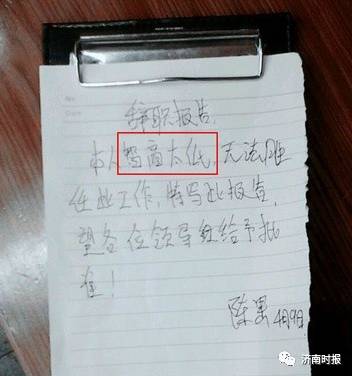 辞职报告
本人智商太低,无法胜
任此工作,特写此报告,
望各位领导给予批
准!
陈 4月9日
济南时报